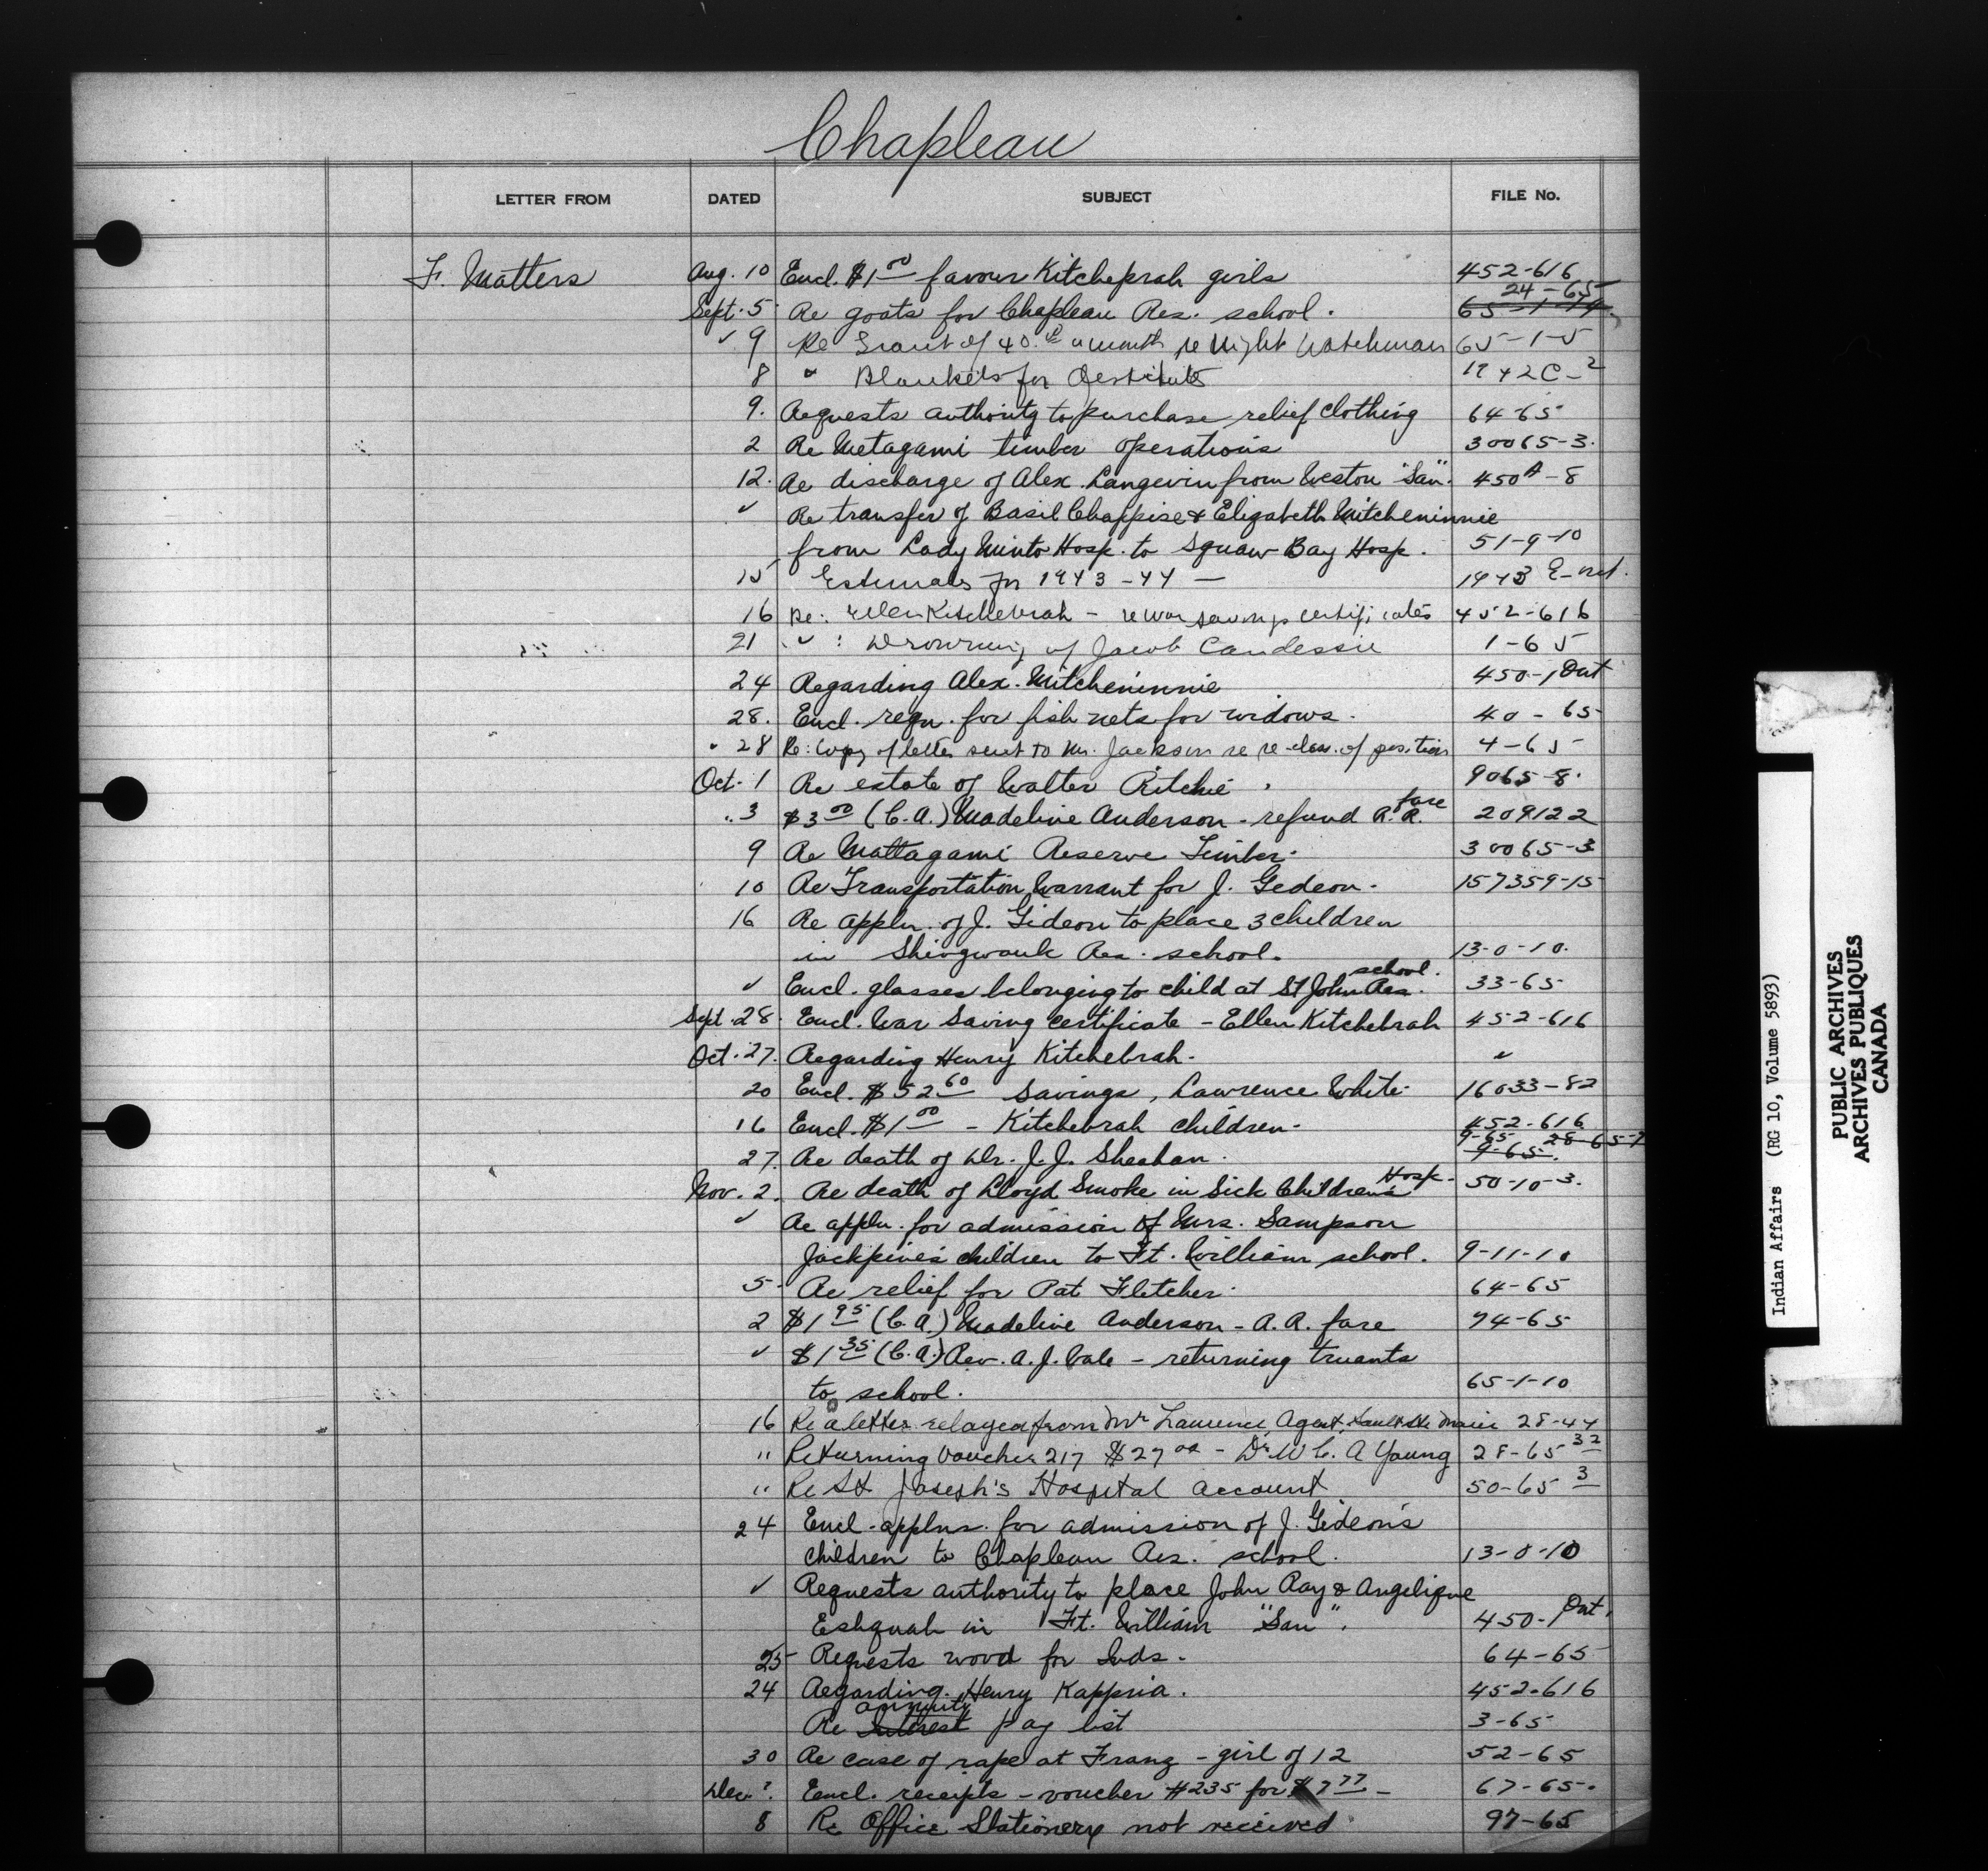 Chapleau
LETTER FROM DATED SUBJECT FILE No.
F. Matters Aug. 10 Encl. $1 00 favour Kitcheprah girls 452-616
24-65
Sept. 5 Re goats for Chapleau Res. school. 65-1-14
✓ 9 Re Grant of 40. a month re Night Watchman 65-1-5
8 " Blankets for Destitute 1942C-2
9. Requests authority to purchase relief clothing 64-65
2 Re Metagami timber operations 30065-3.
12. Re discharge of Alex. Langevin from Weston "San". 450A-8
✓ Re transfer of Basil Chappise & Elizabeth Mitcheninnie
from Lady Minto Hosp. to Squaw Bay Hosp. 51-9-10
15 Estimates for 1943-44 — 1943 E-
16 Re: Ellen Kitchebrah - re war savings certificates 452-616
21 " : Drowning of Jacob Candessie 1-65
24 Regarding Alex. Mitcheninnie 450-1 Ont
28. Encl. reqn. for fish nets for widows. 40-65
" 28 Re: Copy of letter sent to Mr. Jackson re re-class. of position 4-65
Oct. 1 Re estate of Walter Ritchie. 9065-8.
" 3 $3 00 (C.A.) Madeline Anderson - refund R.R. fare 209122
9 Re Mattagami Reserve Timber. 30065-3
10 Re Transportation Warrant for J. Gedeon. 157359-15
16 Re appln. of J. Gideon to place 3 children
in Shingwauk Res. school. 13-0-10.
✓ Encl. glasses belonging to child at St John Res. school. 33-65
Sept. 28. Encl. War Saving Certificate - Ellen Kitchebrah 452-616
Oct. 27. Regarding Henry Kitchebrah. ✓
20 Encl. $52 60 savings, Lawrence White 16033-82
16 Encl. $1 00 - Kitchebrah children. 452-616
9-65 28-65-7
27. Re death of Dr. J. J. Sheahan. 9-65.
Nov. 2. Re death of Lloyd Smoke in Sick Children's Hosp. 50-10-3.
✓ Re appln. for admission of Mrs. Sampson
Jackpine's children to Ft. William school. 9-11-10
5. Re relief for Pat Fletcher. 64-65
2 $1 95 (C.A.) Madeline Anderson - R.R. fare 94-65
✓ $1 35 (C.A.) Rev. A. J. Vale - returning truants
to school. 65-1-10
16 Re a letter relayed from Mr Lawrence, Agent, Sault Ste Marie 28-44
" Returning voucher 217 $27 00 - Dr W C. A Young 28-65 32
" Re St Joseph's Hospital account 50-65 3
24 Encl. applns. for admission of J. Gideon's
children to Chapleau Res. school. 13-0-10
✓ Requests authority to place John Ray & Angelique
Eshquah in Ft. William "San". 450-1 Ont.
25 Requests wood for Inds. 64-65
24 Regarding Henry Kappria. 452-616
annuity
Re Interest pay list 3-65
30 Re case of rape at Franz - girl of 12 52-65
Dec. Encl. receipts - voucher #235 for $7 77 - 67-65.
8 Re Office Stationery not received 97-65
Indian Affairs (RG 10, Volume 5893)
PUBLIC ARCHIVES
ARCHIVES PUBLIQUES
CANADA